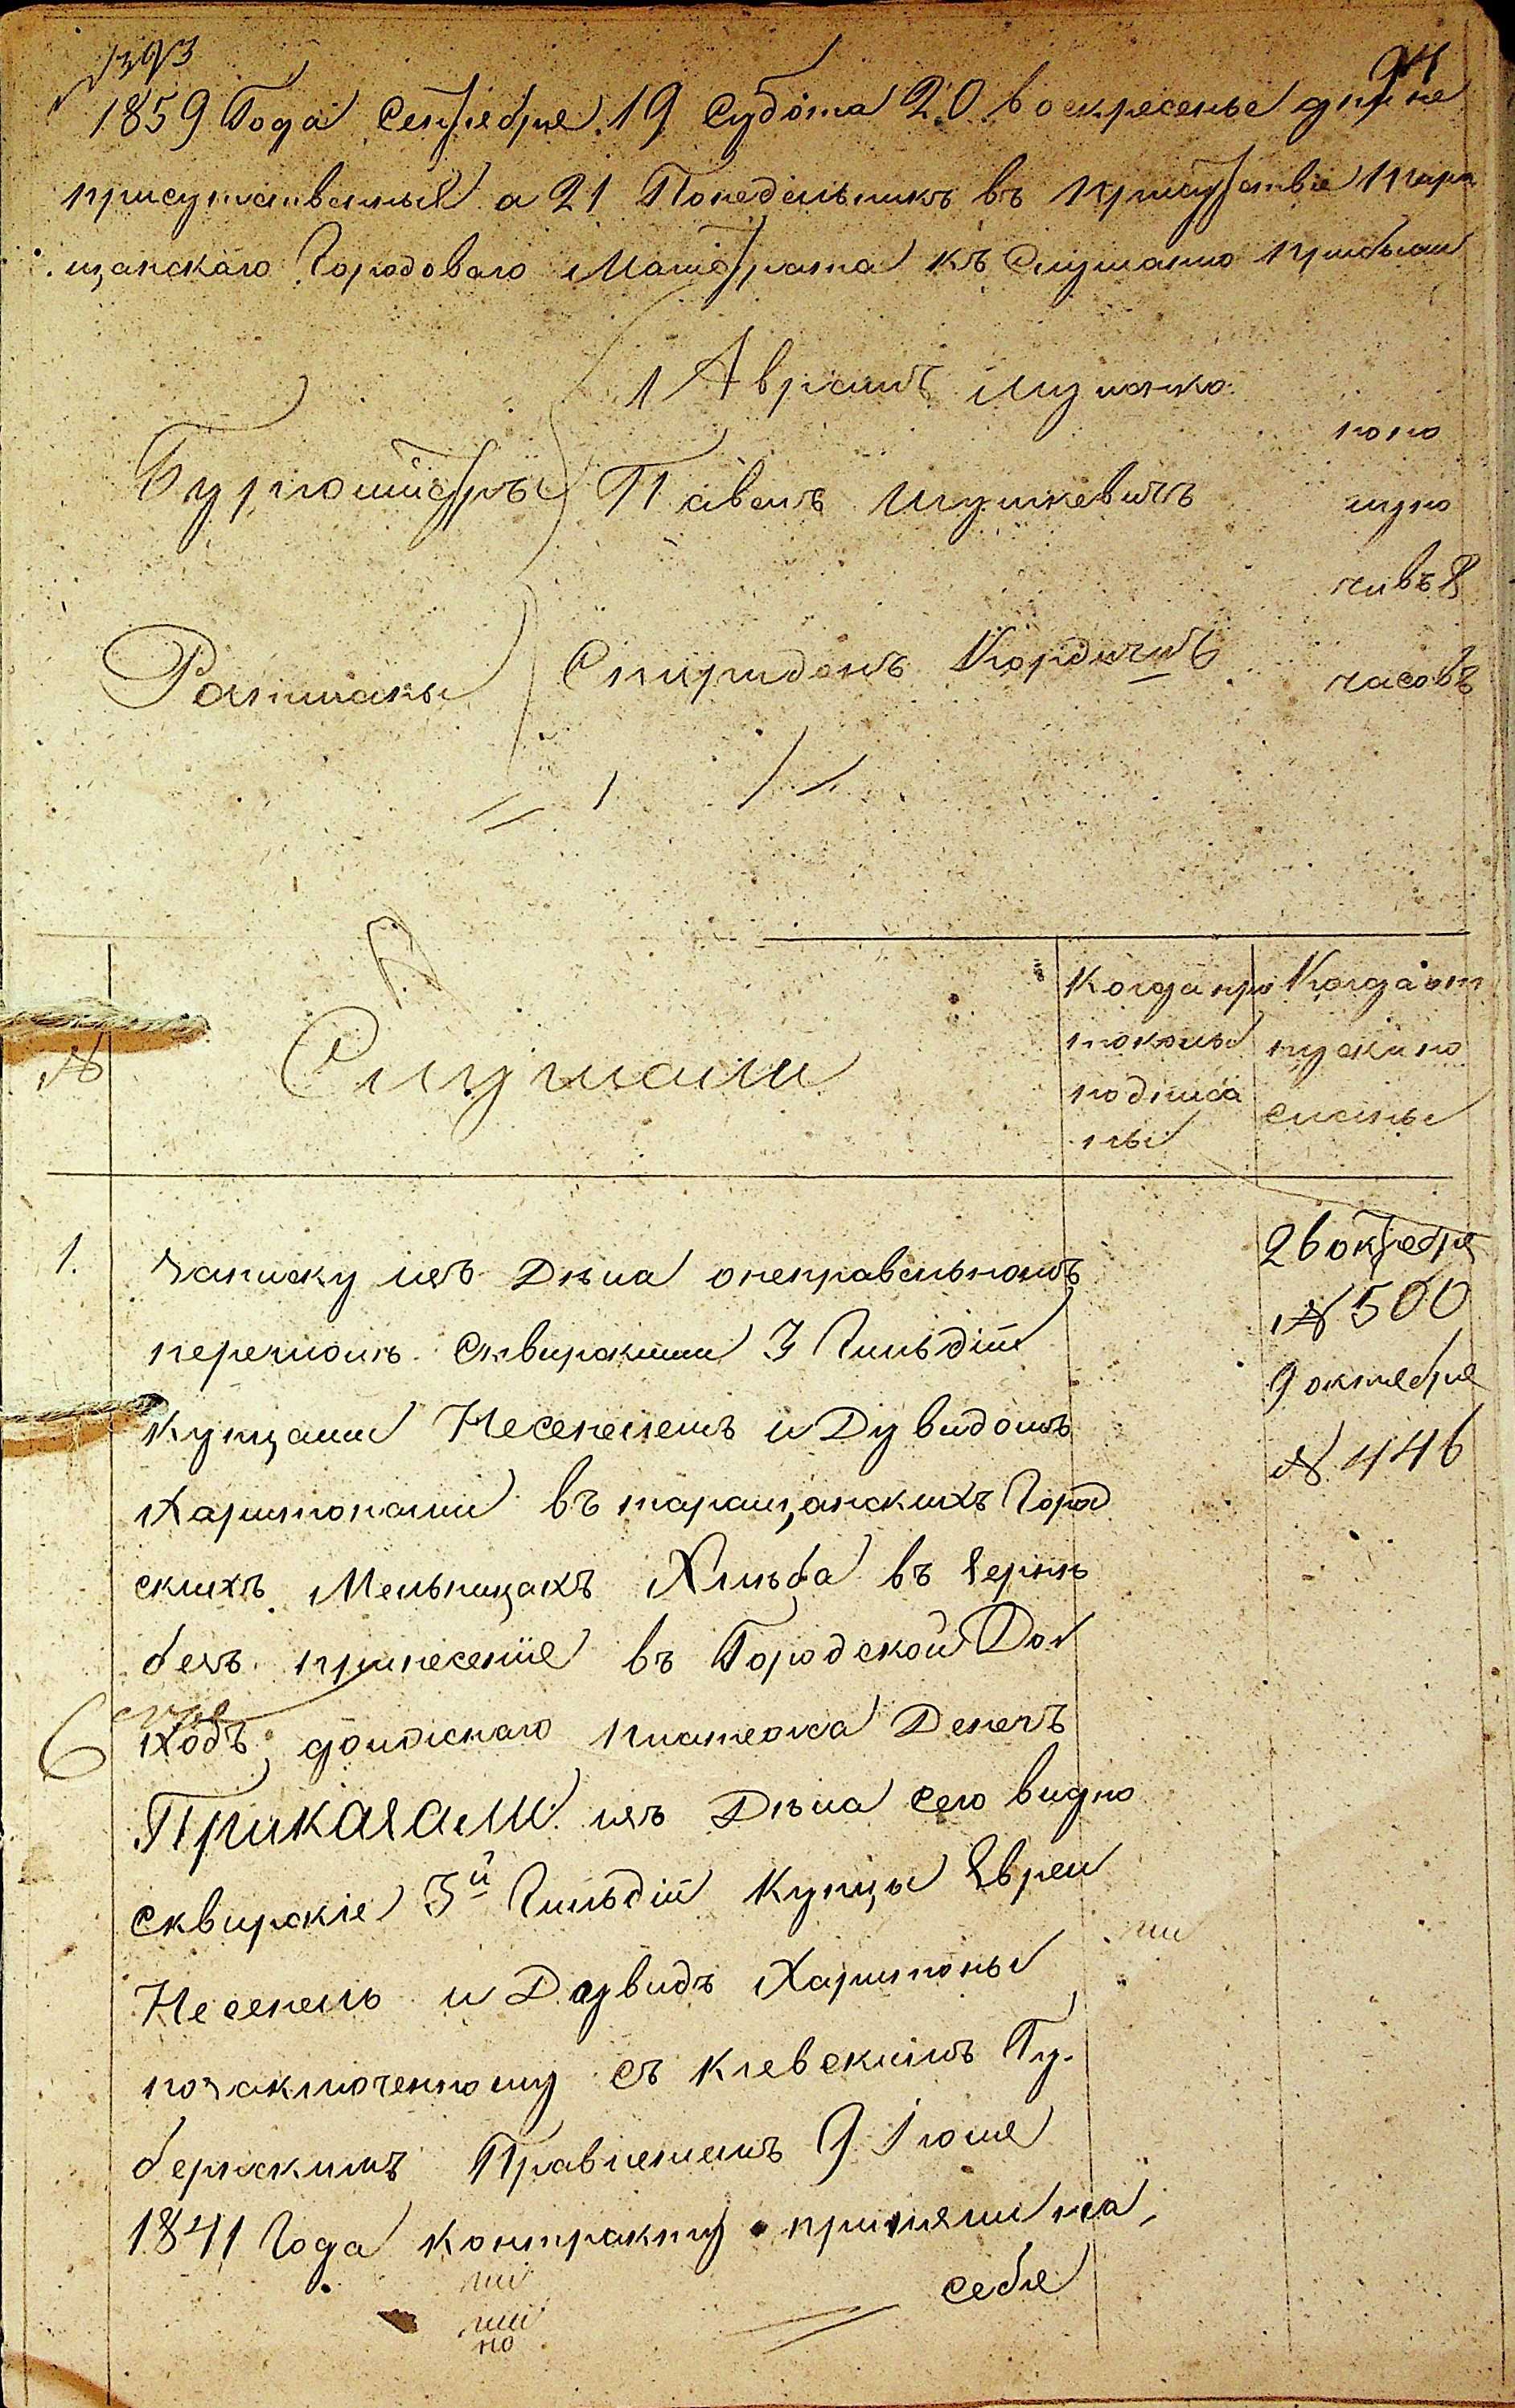 1393
94
1859 Года Сентября 19 Субота 20 воскресенье дни не
присутственныя а 21 Понедельникъ въ присутствіе Тара
щанскаго Городоваго Магистрата къ Слушанію прибыли
Аврамъ
Бургомистръ Павелъ Шушкевичъ
Ратманы Спиридонъ Кордичъ
попо
лудно
чивъ 8
часовъ
№
Слушали
Когда про
токолы
подписа
ны
Когда от
пуски по
сланы
1. Записку изъ Дѣла о неправельномъ
перемолѣ Сквирскими 3 Гильдіи
купцами Несенелемъ и Дувидомъ
Харитонами въ таращанскихъ Город
скихъ Мельницахъ Хлѣба въ зернѣ
безъ принесенія въ Городской До
ходъ должнаго платежа Денегъ
Приказали изъ Дѣла сего видно
Сквирскіе 3й Гильдіи Купцы Евреи
Несенель и Давидъ Харитоны
позаключенному съ Кіевскимъ Гу
бернскимъ Правленіемъ 9 Іюля
1841 Года контракту приняли на
себя
26 октября
№ 500
9 октября
№ 446